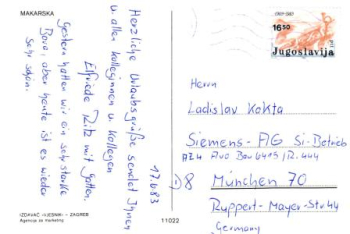 MAKARSKA
Herzliche Urlaubsgrüße sendet Ihnen
u. allen Kolleginnen u. Kollegen
Elfriede Ritz mit Gatten.
Gestern hatten wir ein sehr starke
Bora, aber heute ist es wieder
sehr schön.
17.9.83
IZDAVAČ «VJESNIK» - ZAGREB
Agencija za marketing
11022
16.50
Jugoslavija
Herrn
Ladislav Kokta
Siemens-AG Si-Betrieb
8 München 70
Ruppert-Mayer-Str 44
Germany